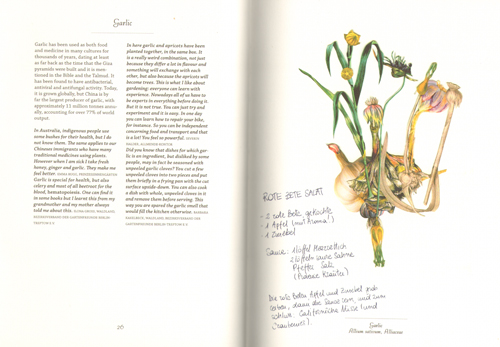 Garlic
Garlic has been used as both food
and medicine in many cultures for
thousands of years, dating at least
as far back as the time that the Giza
pyramids were built and it is men-
tioned in the Bible and the Talmud. It
has been found to have antibacterial,
antiviral and antifungal activity. Today,
garlic is grown globally, but China is by
far the largest producer of garlic, with
approximately 13 million tonnes annu-
ally, accounting for over 77% of world
output.
In Australia, indigenous people use
some bushes for their health, but I do
not know them. The same applies to our
Chinese immigrants who have many
traditional medicines using plants.
However when I am sick I take fresh
honey, ginger and garlic. They make me
feel better.
Garlic is special for health, but also
celery and most of all beetroot for the
blood, hematopoiesis. One can find it
in some books but I learnt this from my
grandmother and my mother always
told me about this.
In here garlic and apricots have been
planted together, in the same box. It
is a really weird combination, not just
because they differ a lot in flavour and
something will exchange with each
other, but also because the apricots will
become trees. This is what I like about
gardening: everyone can learn with
experience. Nowadays all of us have to
be experts in everything before doing it.
But it is not true. You can just try and
experiment and it is easy. In one day
you can learn how to repair your bike,
for instance. So you can be independent
concerning food and transport and that
is a lot! You feel so powerful.
Did you know that dishes for which gar-
lic is an ingredient, but disliked by some
people, may in fact be seasoned with
unpeeled garlic cloves? You cut a few
unpeeled cloves into two pieces and put
them briefly in a frying pan with the cut
surface upside-down. You can also cook
a dish with whole, unpeeled cloves in it
and remove them before serving. This
way you are spared the garlic smell that
would fill the kitchen otherwise.
20
ROTE BETE SALAT
- 2 rote Bete gekochte
- 1 Apfel (mit Aroma!)
- 1 Zwiebel
Sauce: 1 Löffel Meerrettich
2 Löffeln saure Sahne
Pfeffer Salz
Die rote Beten Apfel und Zwiebel
dann die Sauce und zum
Schluss Californische Nüsse (und
Garlic
Allium sativum, Alliaceae